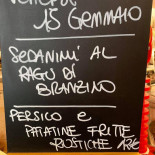 VENERDÌ
15 GENNAIO
SEDANINI AL
RAGÙ DI
BRANZINO
PERSICO e
PATATINE FRITTE
RUSTICHE 12€